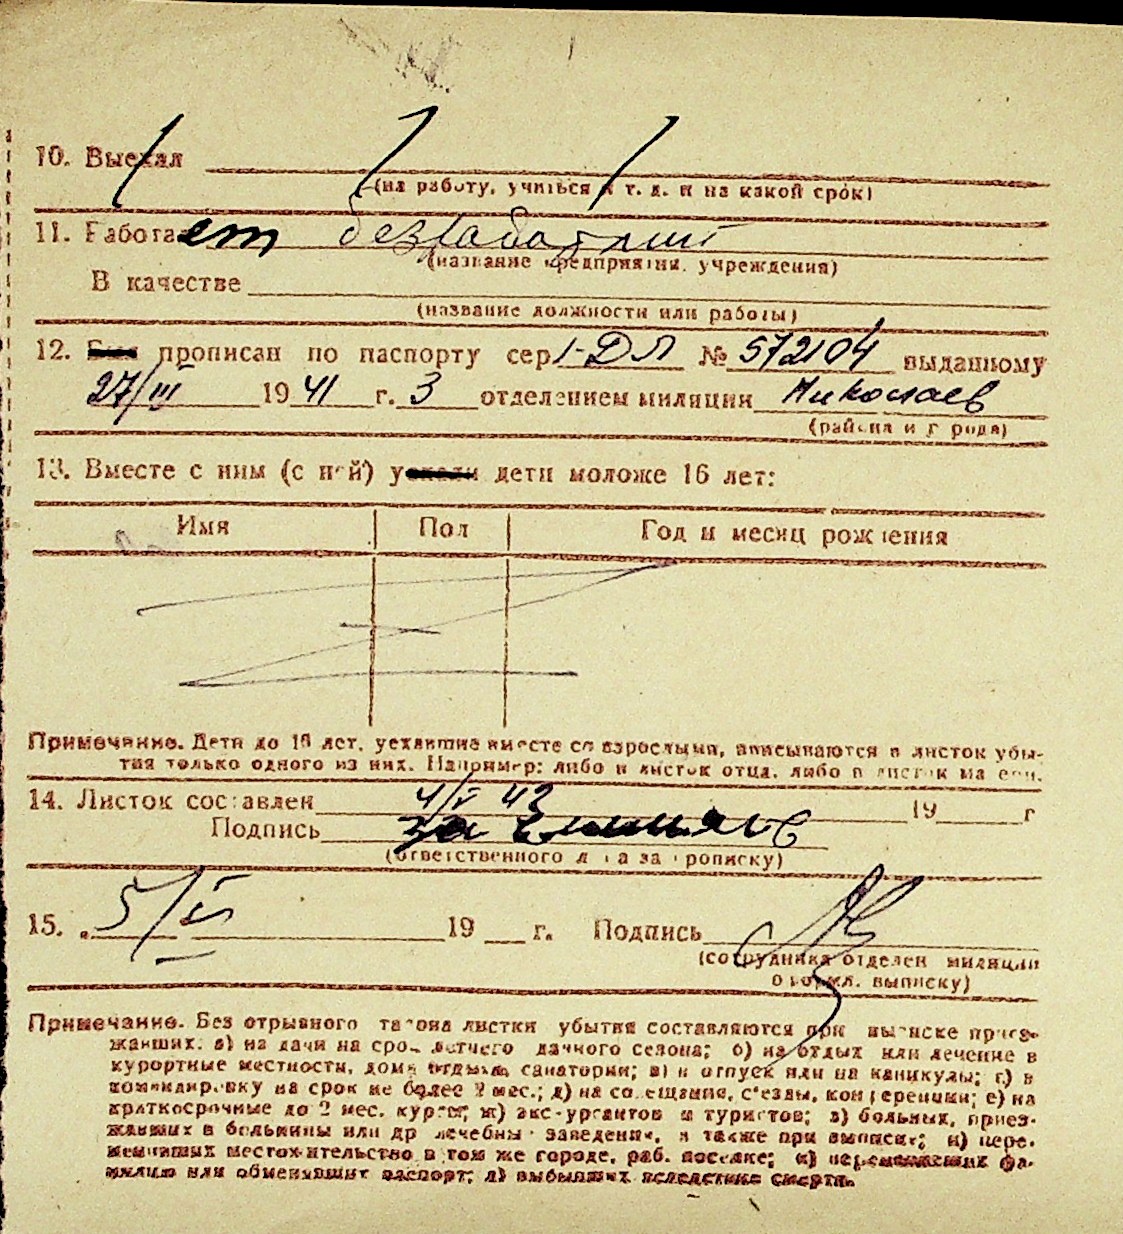 10. Выехал
(на работу, учиться и т. д. и на какой срок)
11. Работает безработный
(название предприятия, учреждения)
В качестве
(название должности или работы)
12. Был прописан по паспорту сер. 1-ДЛ № 572104 выданному
27/III 1941 г. 3 отделением милиции Николаев
(района и города)
13. Вместе с ним (с ней) уехали дети моложе 16 лет:
Имя Пол Год и месяц рождения
Примечание. Дети до 16 лет, уехавшие вместе со взрослыми, вписываются в листок убы-
тия только одного из них. Например: либо в листок отца, либо в листок матери.
14. Листок составлен 4/V 42 19 г
Подпись за
(ответственного лица за прописку)
15. 5/VI 19 г. Подпись
(сотрудника отделен. милиции
оформл. выписку)
Примечание. Без отрывного талона листки убытия составляются при выписке приез-
жавших: а) на дачи на срок летнего дачного сезона; б) на отдых или лечение в
курортные местности, дома отдыха, санатории; в) в отпуск или на каникулы; г) в
командировку на срок не более 2 мес.; д) на совещания, съезды, конференции; е) на
краткосрочные до 2 мес. курсы; ж) экскурсантов и туристов; з) больных, приез-
жавших в больницы или др лечебны заведения, а также при выписке; и) пере-
менивших местожительство в том же городе, раб. поселке; к) переменивших фа-
милию или обменявших паспорт; л) выбывших вследствие смерти.